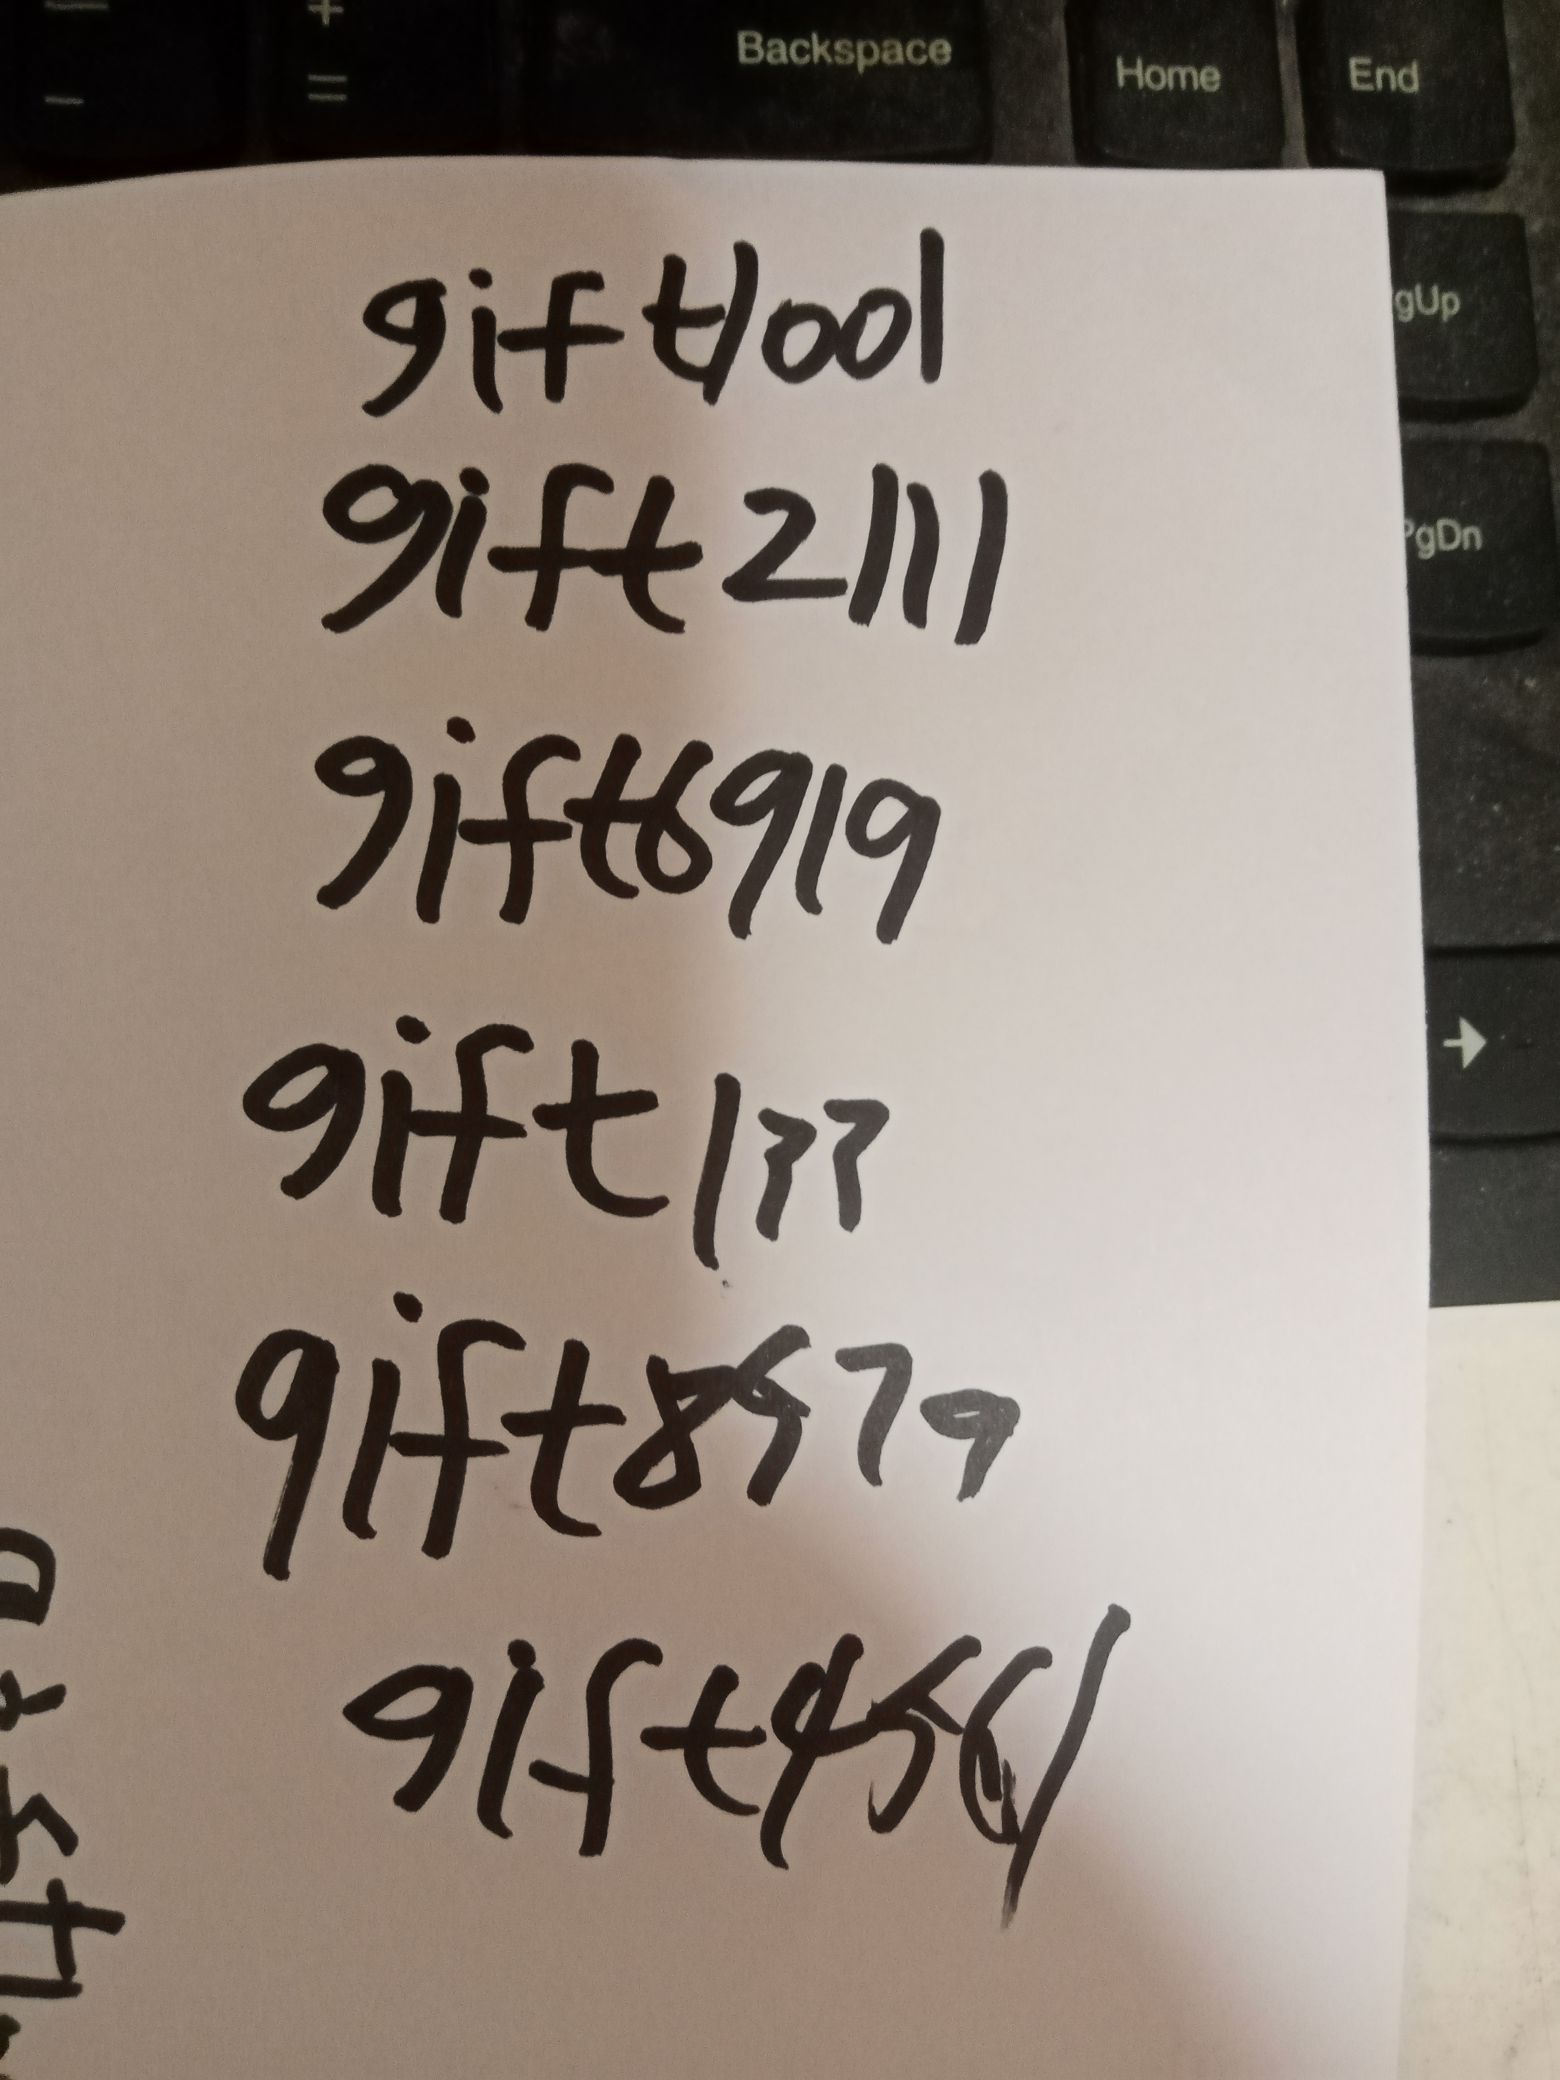 Backspace
Home
End
gUp
PgDn
gift1001
gift2111
gift6919
gift133
gift8579